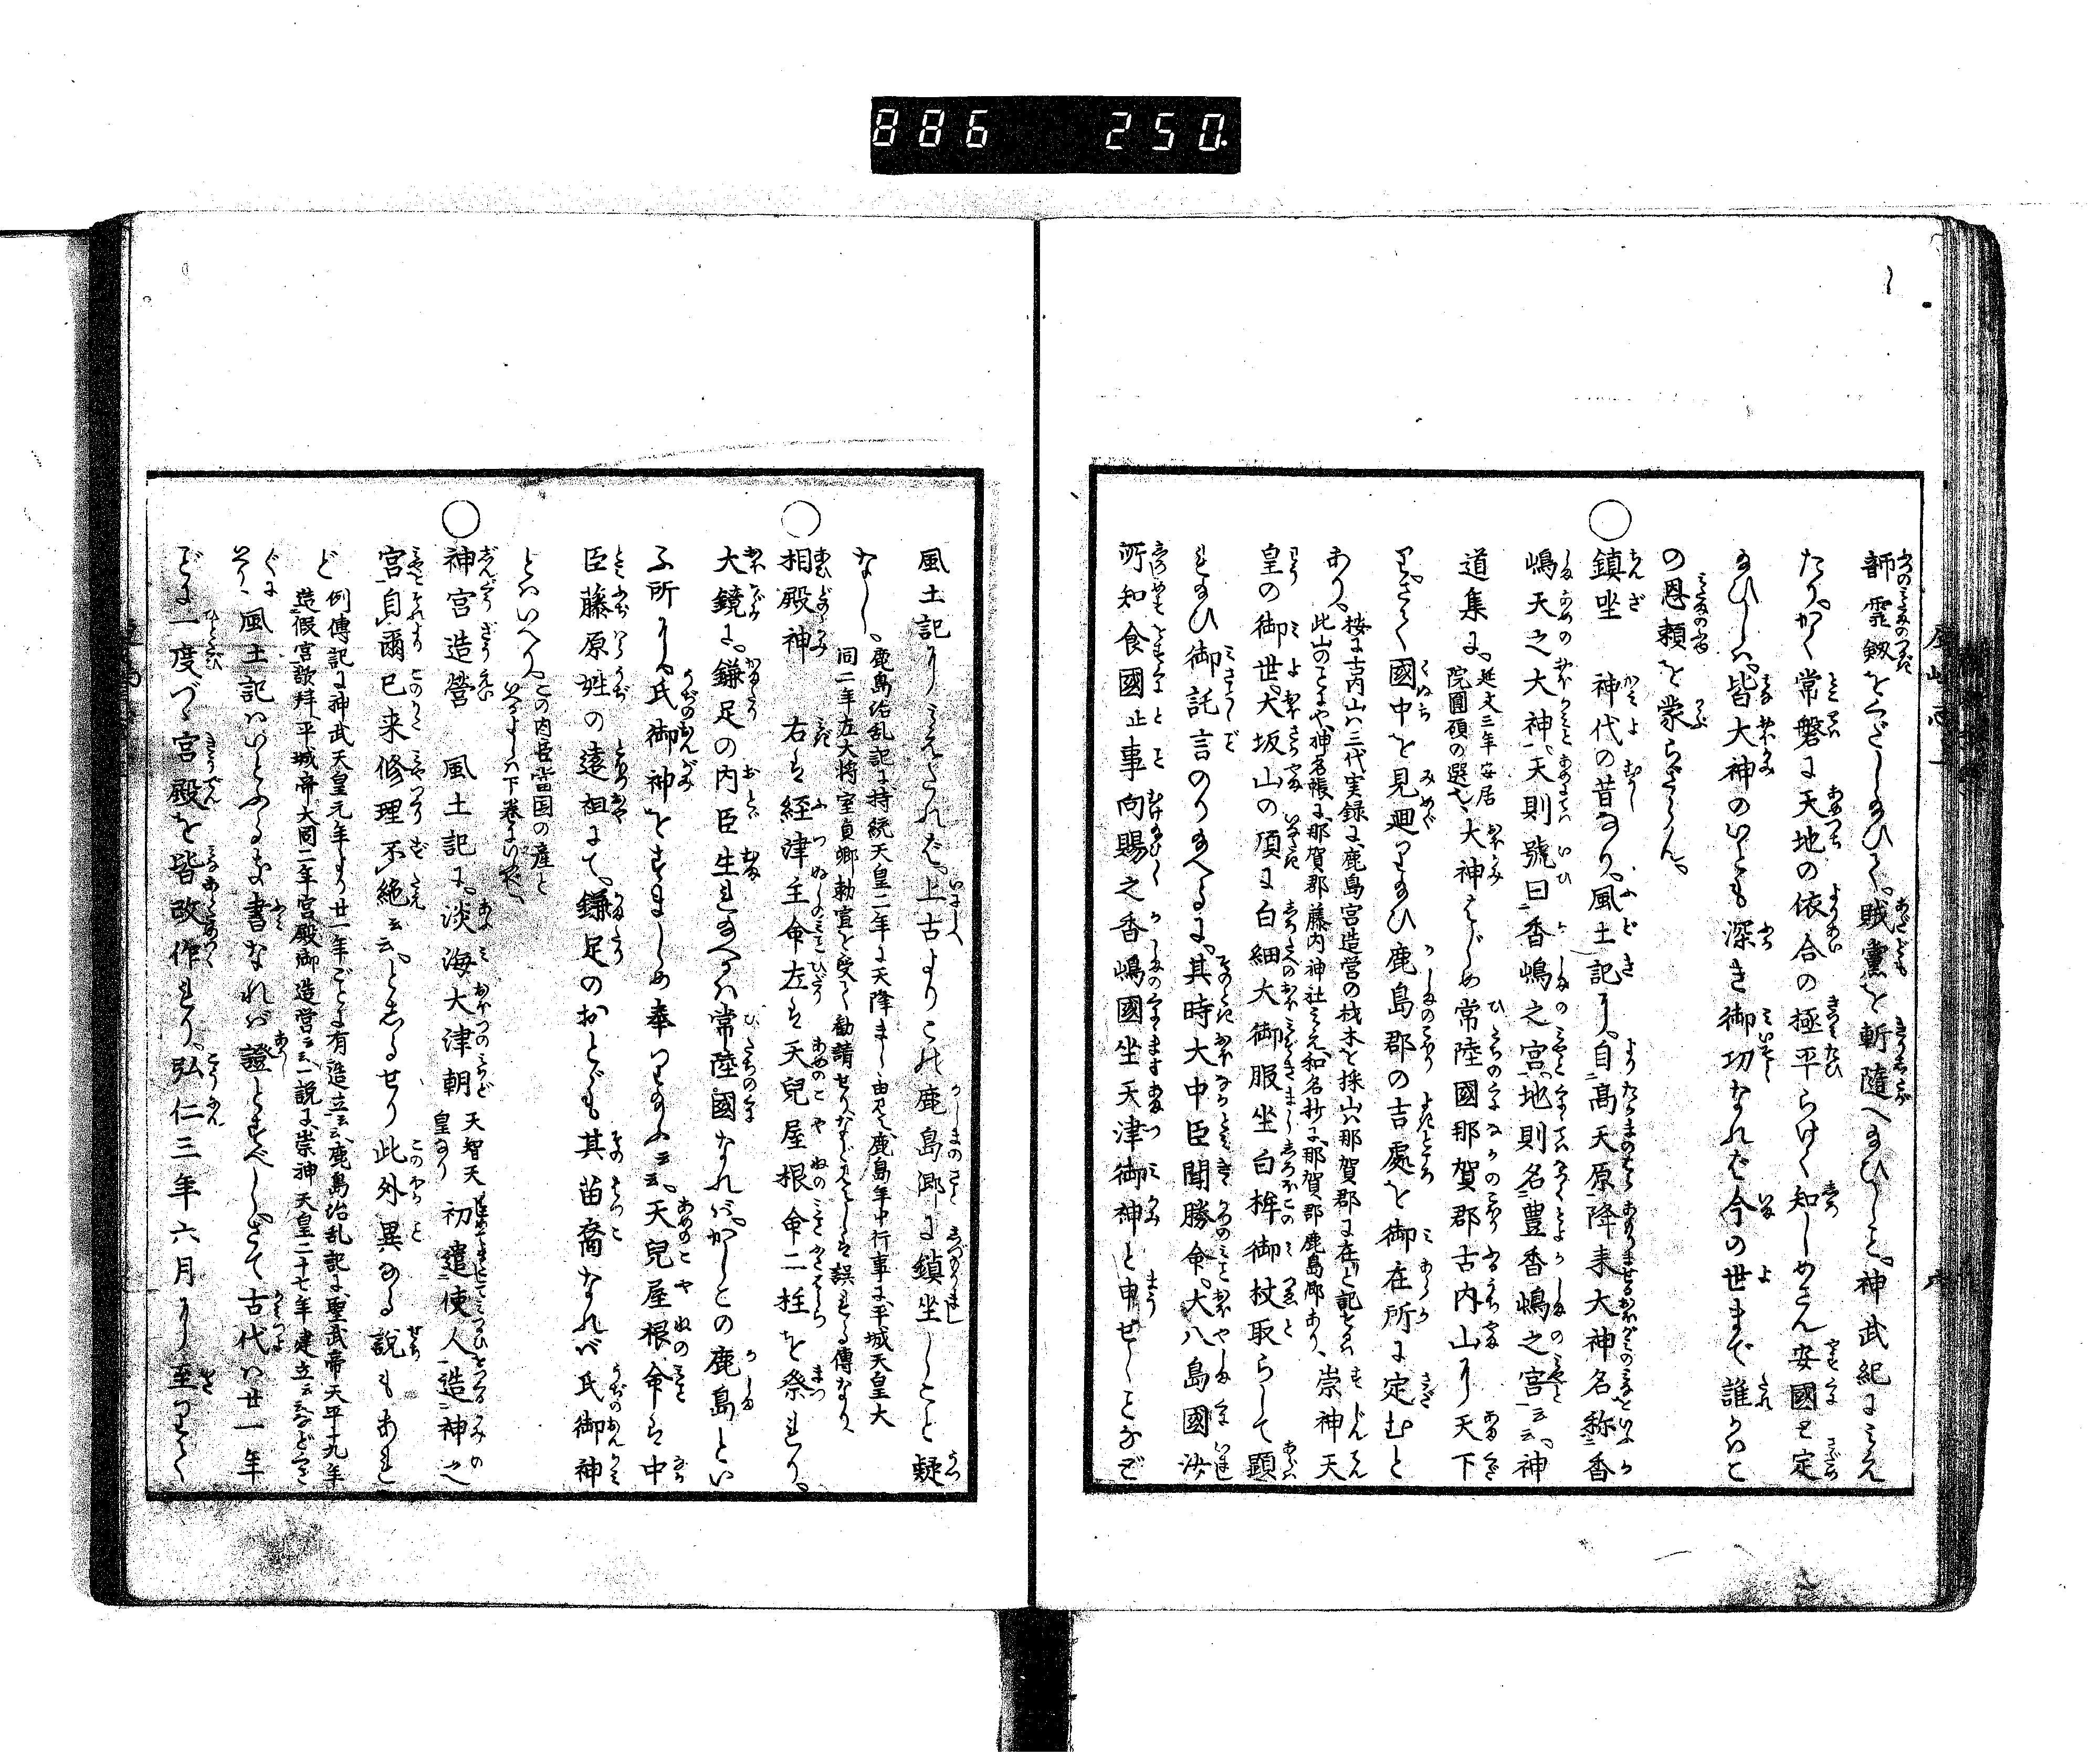 886 250.
鹿島志上
韴霊剱をくだし給ひて、賊黨を斬隨へ給ひしこと、神武紀にみえ
たり、かく常磐に天地の依合の極平らけく知しめさん安國と定
給ひしハ、皆大神のいとも深き御功なれど今の世まで誰かハこ
の恩頼を蒙らざらん、
○鎮坐 神代の昔なり、風土記に、自高天原降来大神名称香
嶋天之大神、天則號曰香嶋之宮、地則名豊香嶋之宮云云、神
道集に、延文三年安居院圓碩の選也、大神はじめ常陸國那賀郡古内山に天下
りまして國中を見廻り給ひ鹿島郡の吉處を御在所に定むと
あり、按に古内山ハ三代実録に、鹿島宮造営の材木を採山ハ那賀郡に在と記せるハ
此山のことにや、神名帳に、那賀郡藤内神社とみえ、和名抄に、那賀郡鹿島郷あり、崇神天
皇の御世、大坂山の頂に白細大御服坐白桙御杖取らして顕
れ給ひ御託言のりまへるに、其時大中臣聞勝命、大八島國汝
所知食國止事向賜之香嶋國坐天津御神と申せしことなど
風土記にみえたれど、上古よりこの鹿島郷に鎮坐しこと疑
なし、鹿島治乱記に持統天皇二年に天降まし由見え、鹿島年中行事に、平城天皇大
同二年左大将室貞卿勅宣を受て勧請せりなど見えしは誤れる傳なり、
○相殿神 右は経津主命左は天兒屋根命二柱を祭れり、
大鏡に、鎌足の内臣生れ給へるハ常陸國なれば、かしこの鹿島とい
ふ所に、氏御神をすましめ奉りたまふ云云、天兒屋根命は中
臣藤原姓の遠祖にて、鎌足のおとども其苗裔なれバ氏御神
とハいへり、この内臣當国の産と
いふよしハ下巻にいふべし、
○神宮造營 風土記に、淡海大津朝天智天
皇なり初遣使人造神之
宮、自爾已来修理不絶云云、としるせり此外異なる説もあれ
ど例傳記に神武天皇元年より廿一年ごとに有造立云云、鹿島治乱記に、聖武帝天平十九年
造假宮歌拜、平城帝大同二年宮殿御造営云云、一説に、崇神天皇二十七年建立云云などみ
ぐに風土記ハいとふるき書なれバ證とすべし、さて古代ハ廿一年
どに一度づゝ宮殿を皆改作れり、弘仁三年六月に至りて